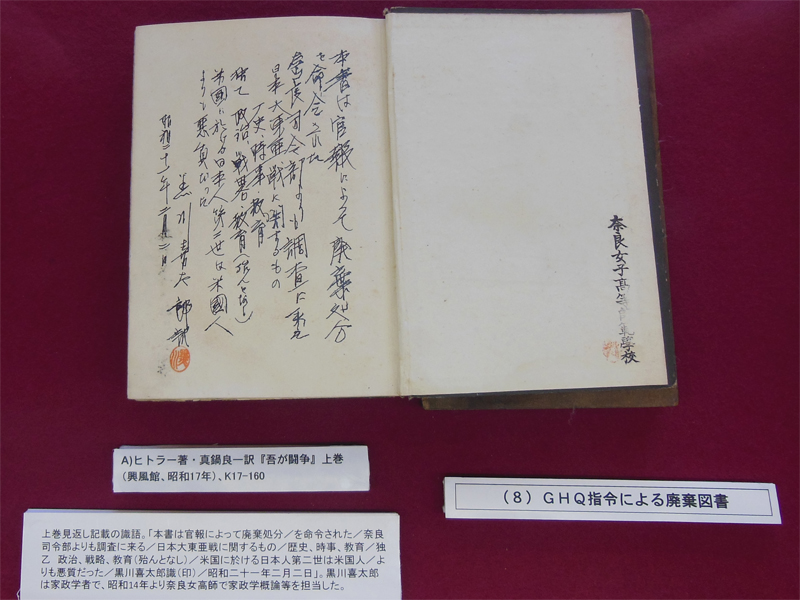 奈良女子高等師範學校
本書は官報によって廃棄処分
を命令された
奈良司令部よりも調査に来る
日本大東亜戦に関するもの
歴史、時事、教育
独乙 政治、戦略、教育(殆んとなし)
米國に於ける日本人第二世は米國人
よりも悪質だった
黒川喜太郎識
昭和二十一年二月二日
A)ヒトラー著・真鍋良一訳『吾が闘争』上巻
(興風館、昭和17年)、K17-160
(8) GHQ指令による廃棄図書
上巻見返し記載の識語。「本書は官報によって廃棄処分/を命令された/奈良
司令部よりも調査に来る/日本大東亜戦に関するもの/歴史、時事、教育/独
乙 政治、戦略、教育(殆んとなし)/米国に於ける日本人第二世は米国人/よ
りも悪質だった/黒川喜太郎識(印)/昭和二十一年二月二日」。黒川喜太郎
は家政学者で、昭和14年より奈良女高師で家政学概論等を担当した。